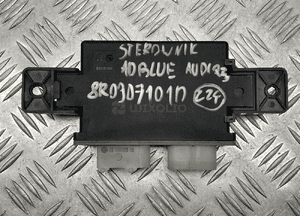 STEROWNIK
ADBLUE AUDI Q3
8R0307101D